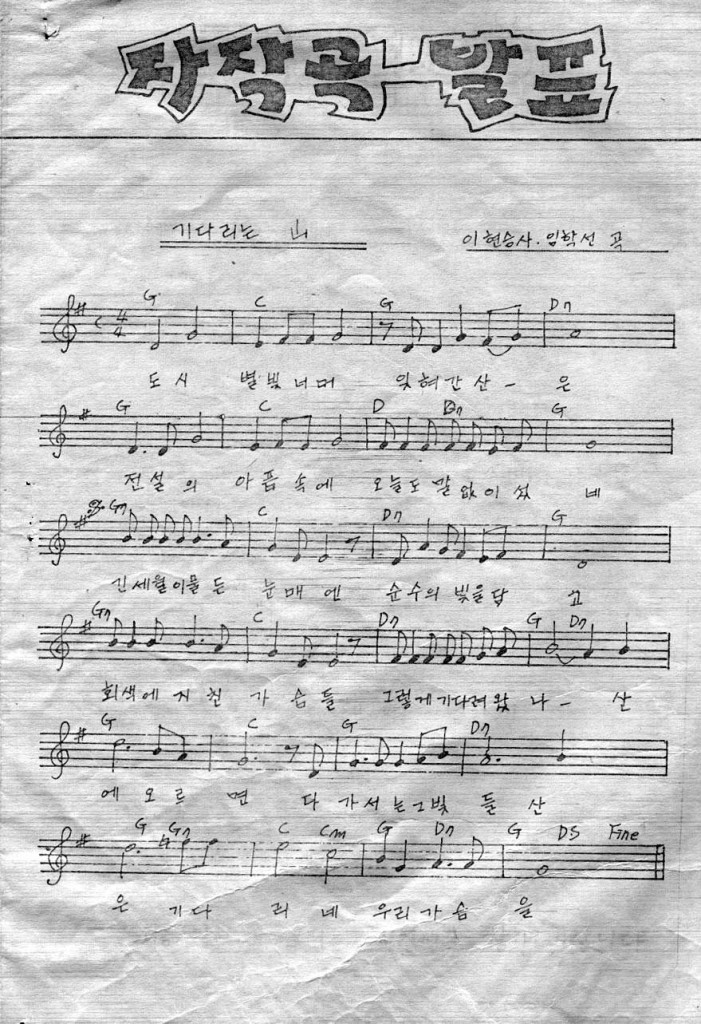 자작곡 발표
기다리는 山
이현승사. 임학선 곡
G C G D7
4/4
도시 별빛너머 잊혀간산- 은
G C D D7 G
전설의 아픔속에 오늘도말없이섰 네
G7 C D7 G
긴세월이물든 눈매엔 순수의빛을담 고
G7 C D7 G D7
회색에지친 가슴들 그렇게기다려왔나- 산
G C G D7
에오르면 다가서는그빛들산
G G7 C Cm G D7 G DS Fine
은 기다 리네 우리가슴을